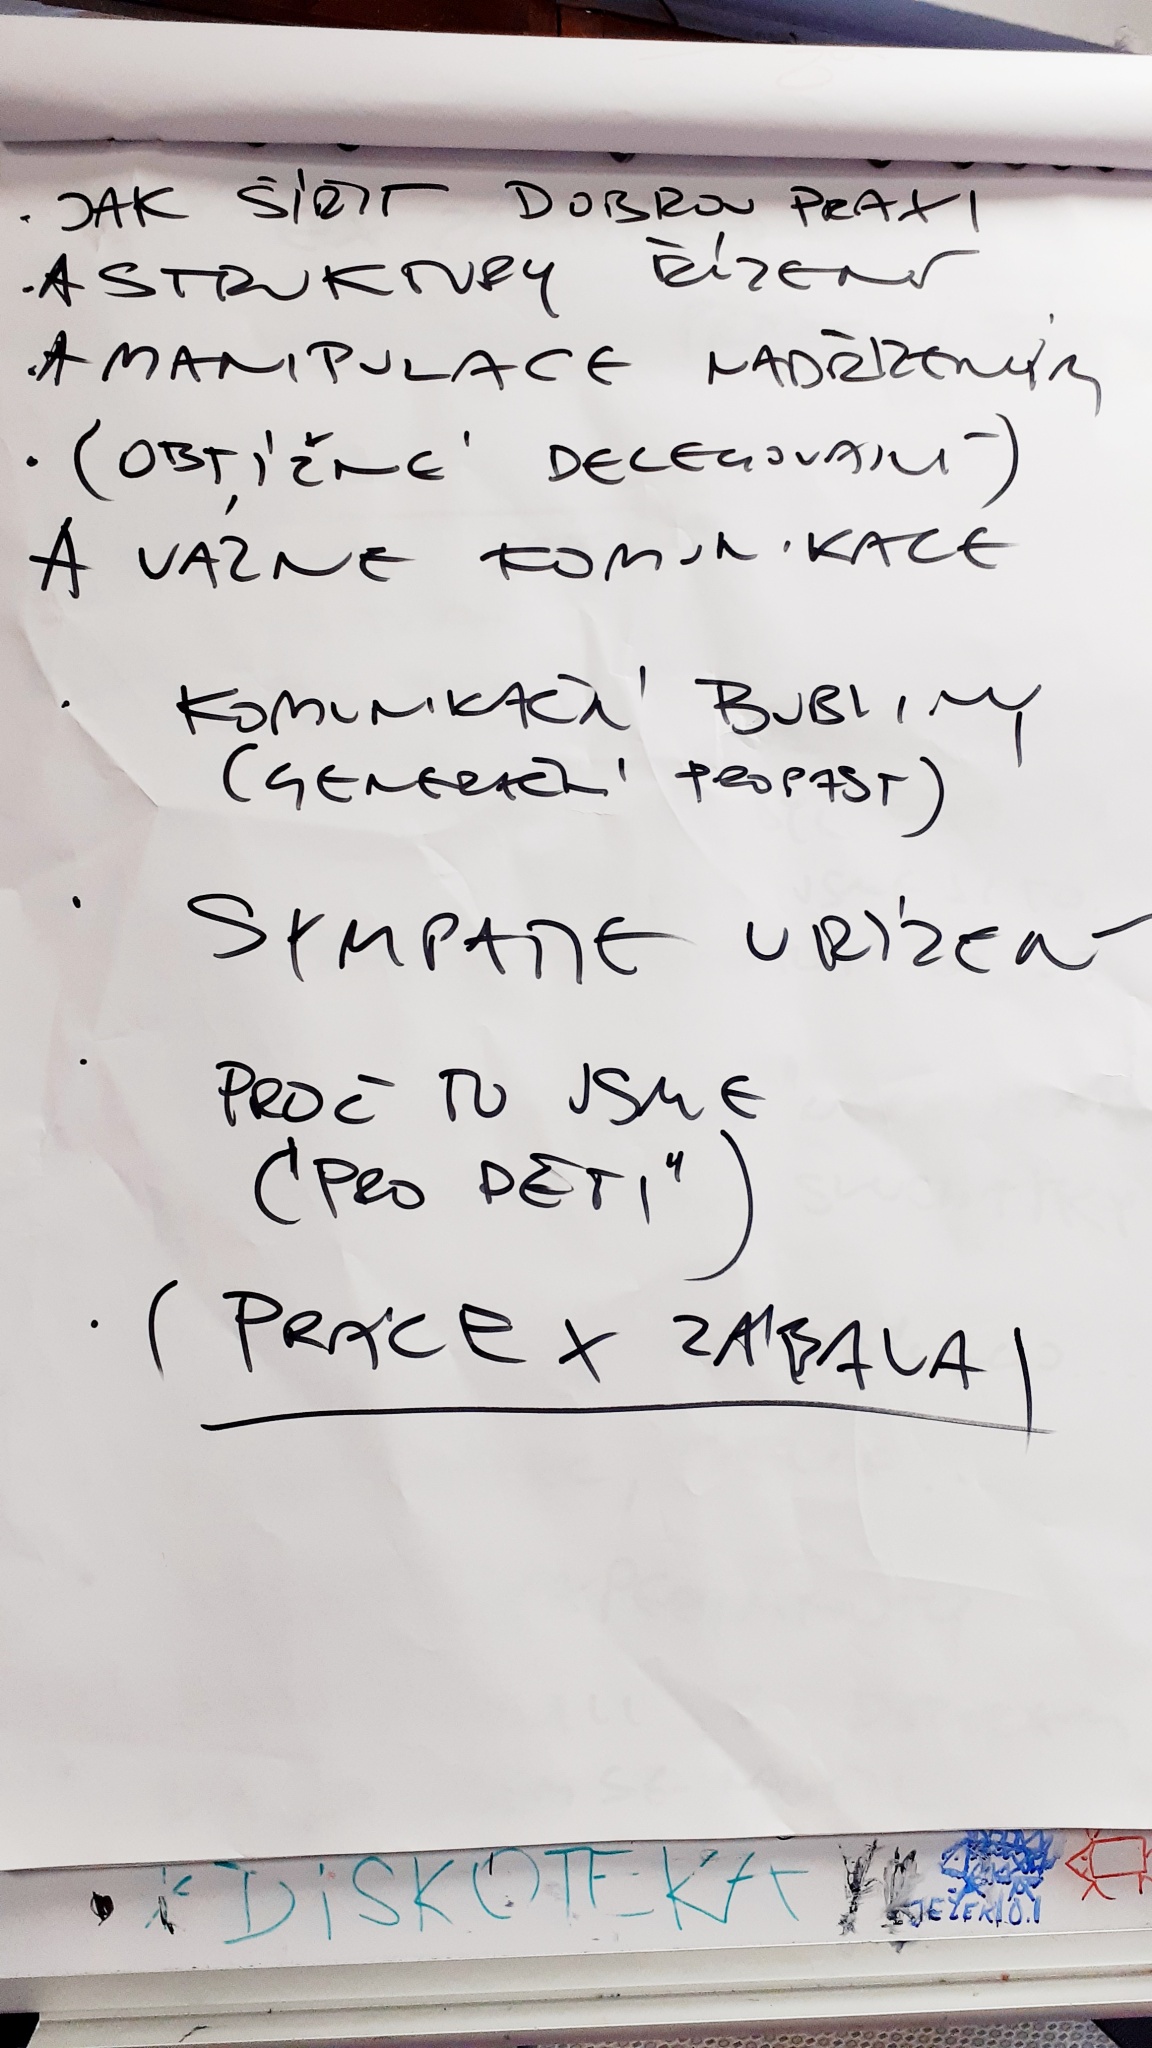 · JAK ŠÍŘIT DOBROU PRAXI
· A STRUKTURY ŘÍZENÍ
· A MANIPULACE NADŘÍZENÝM
· (OBTÍŽNÉ DELEGOVÁNÍ)
A VÁZNE KOMUNIKACE
· KOMUNIKAČNÍ BUBLINY
(GENERAČNÍ PROPAST)
· SYMPATIE V ŘÍZENÍ
· PROČ TU JSME
("PRO DĚTI")
· (PRÁCE X ZÁBAVA)
DiSKOTEKA
JEŽEK